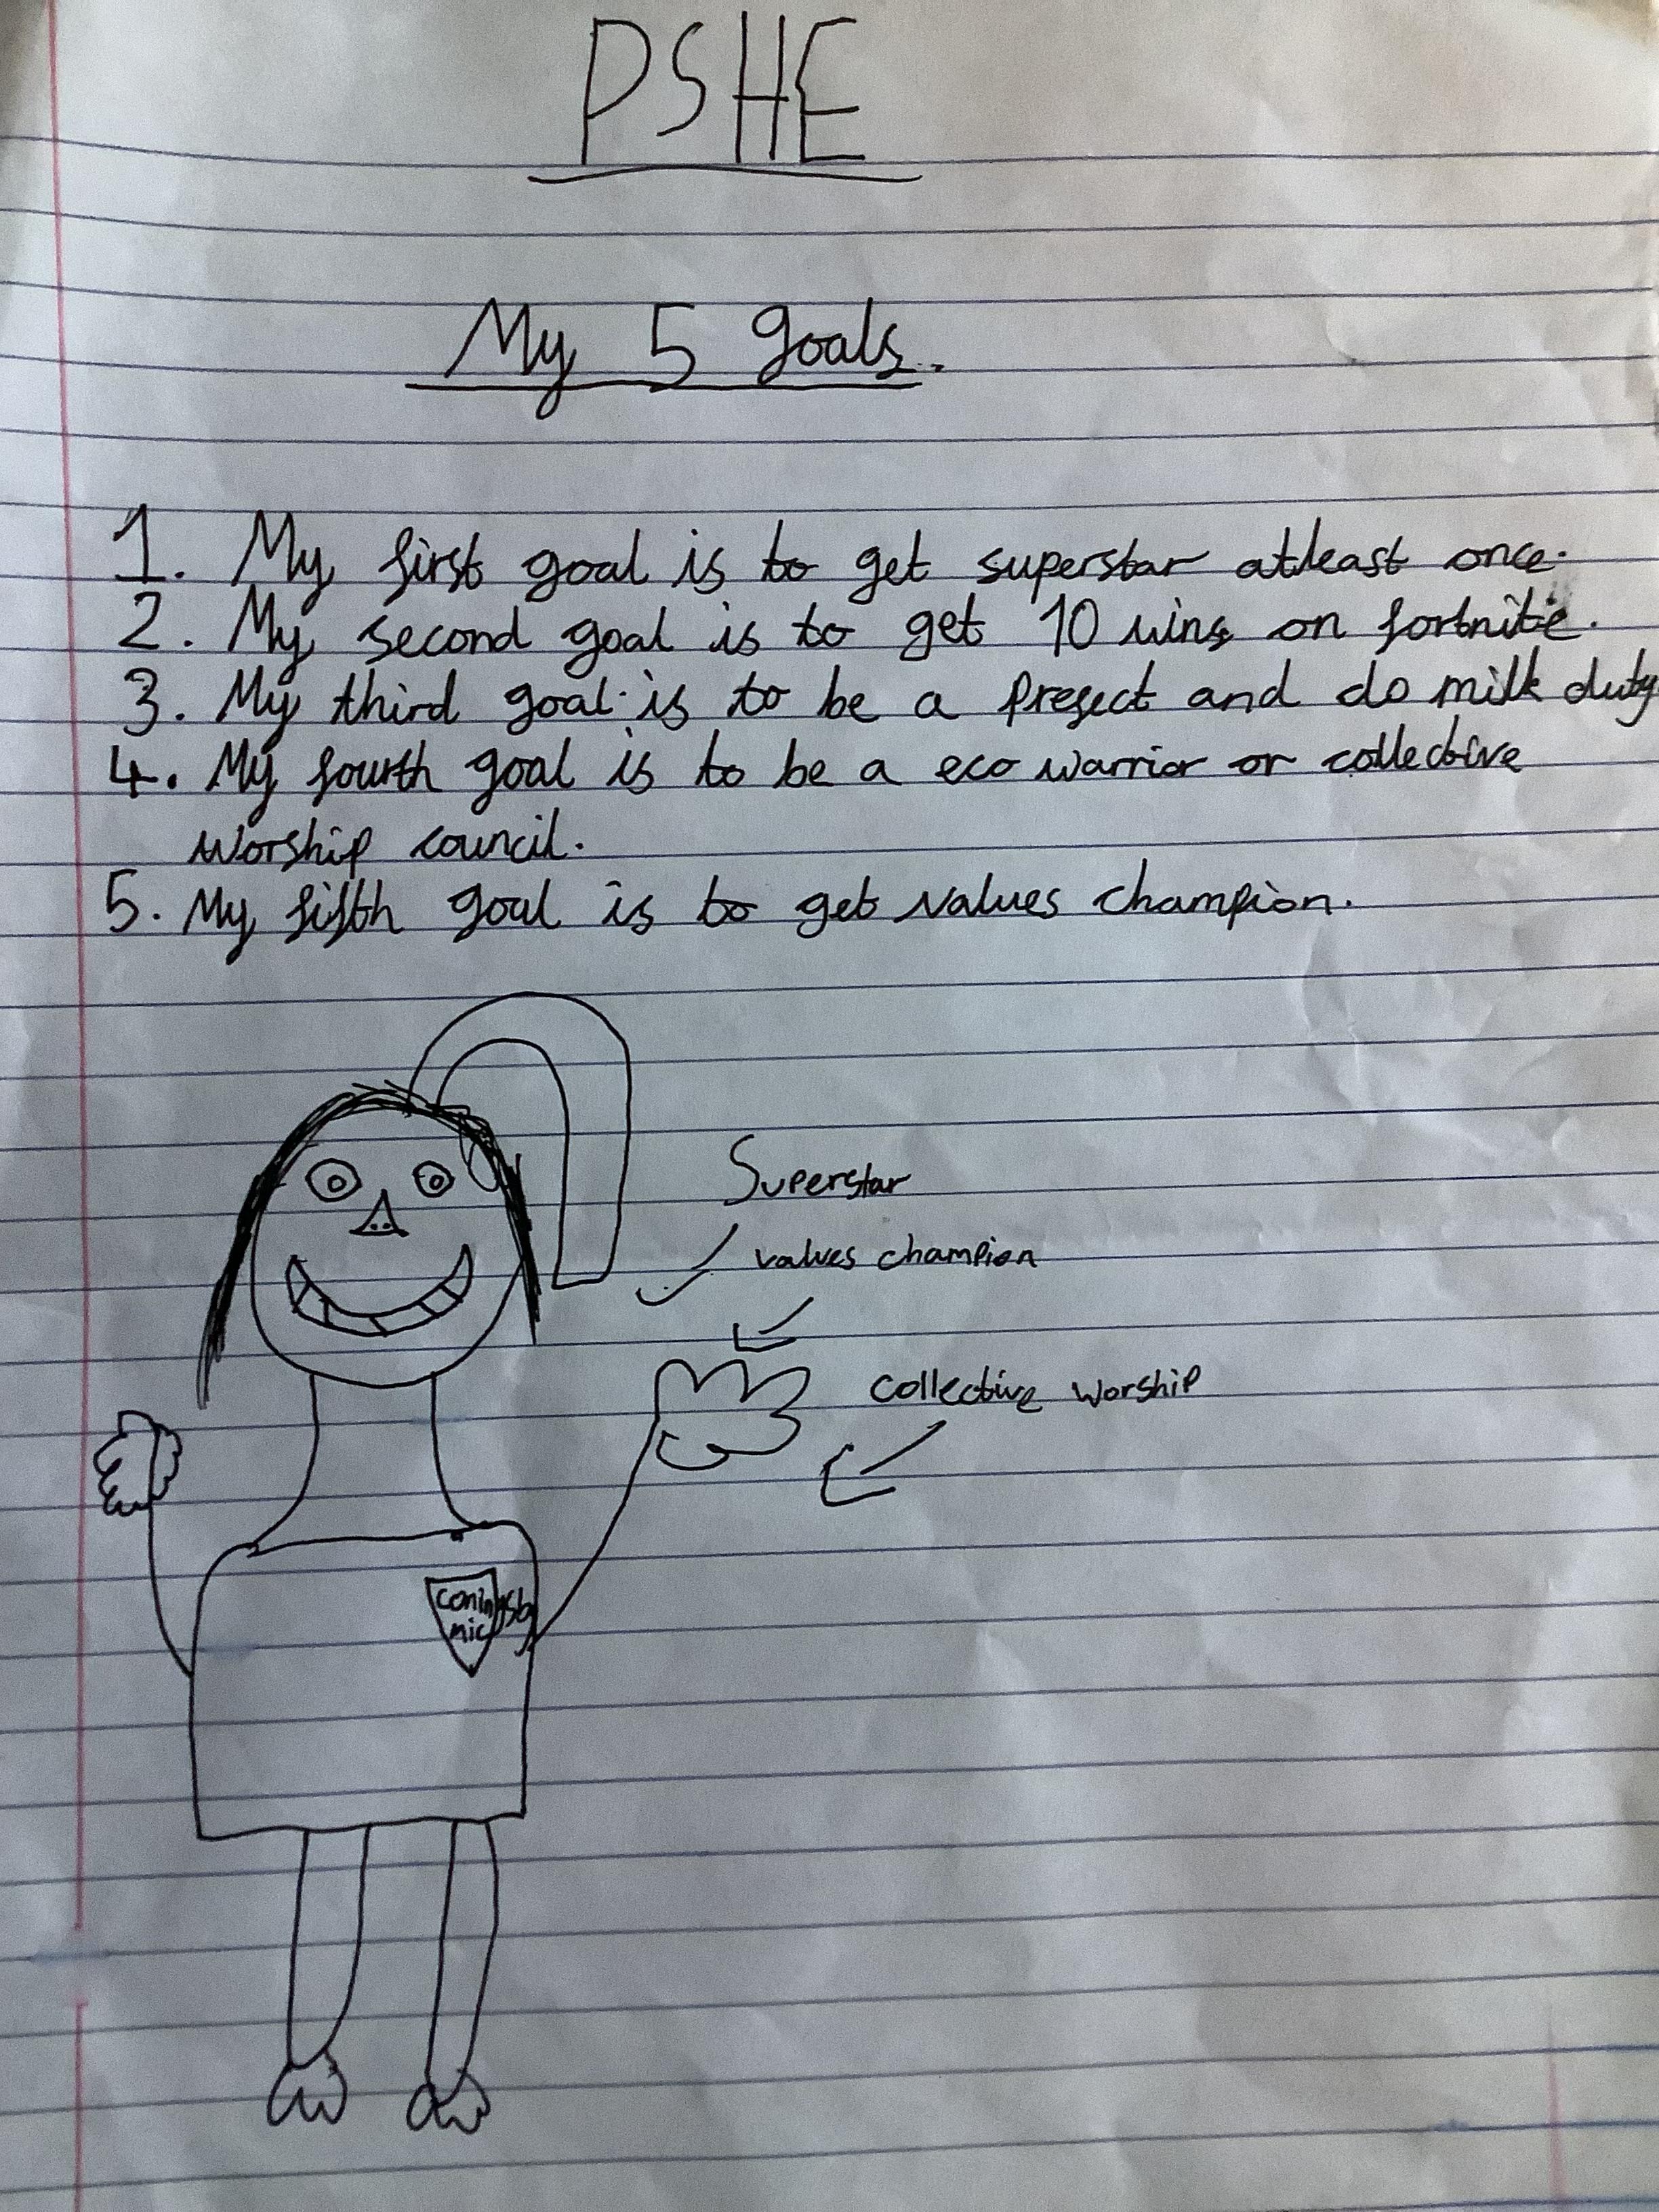 PSHE
My 5 goals.
1. My first goal is to get superstar atleast once.
2. My second goal is to get 10 wins on fortnite.
3. My third goal is to be a prefect and do milk duty
4. My fourth goal is to be a eco warrior or collective
worship council.
5. My fifth goal is to get values champion.
Superstar
values champion
collective worship